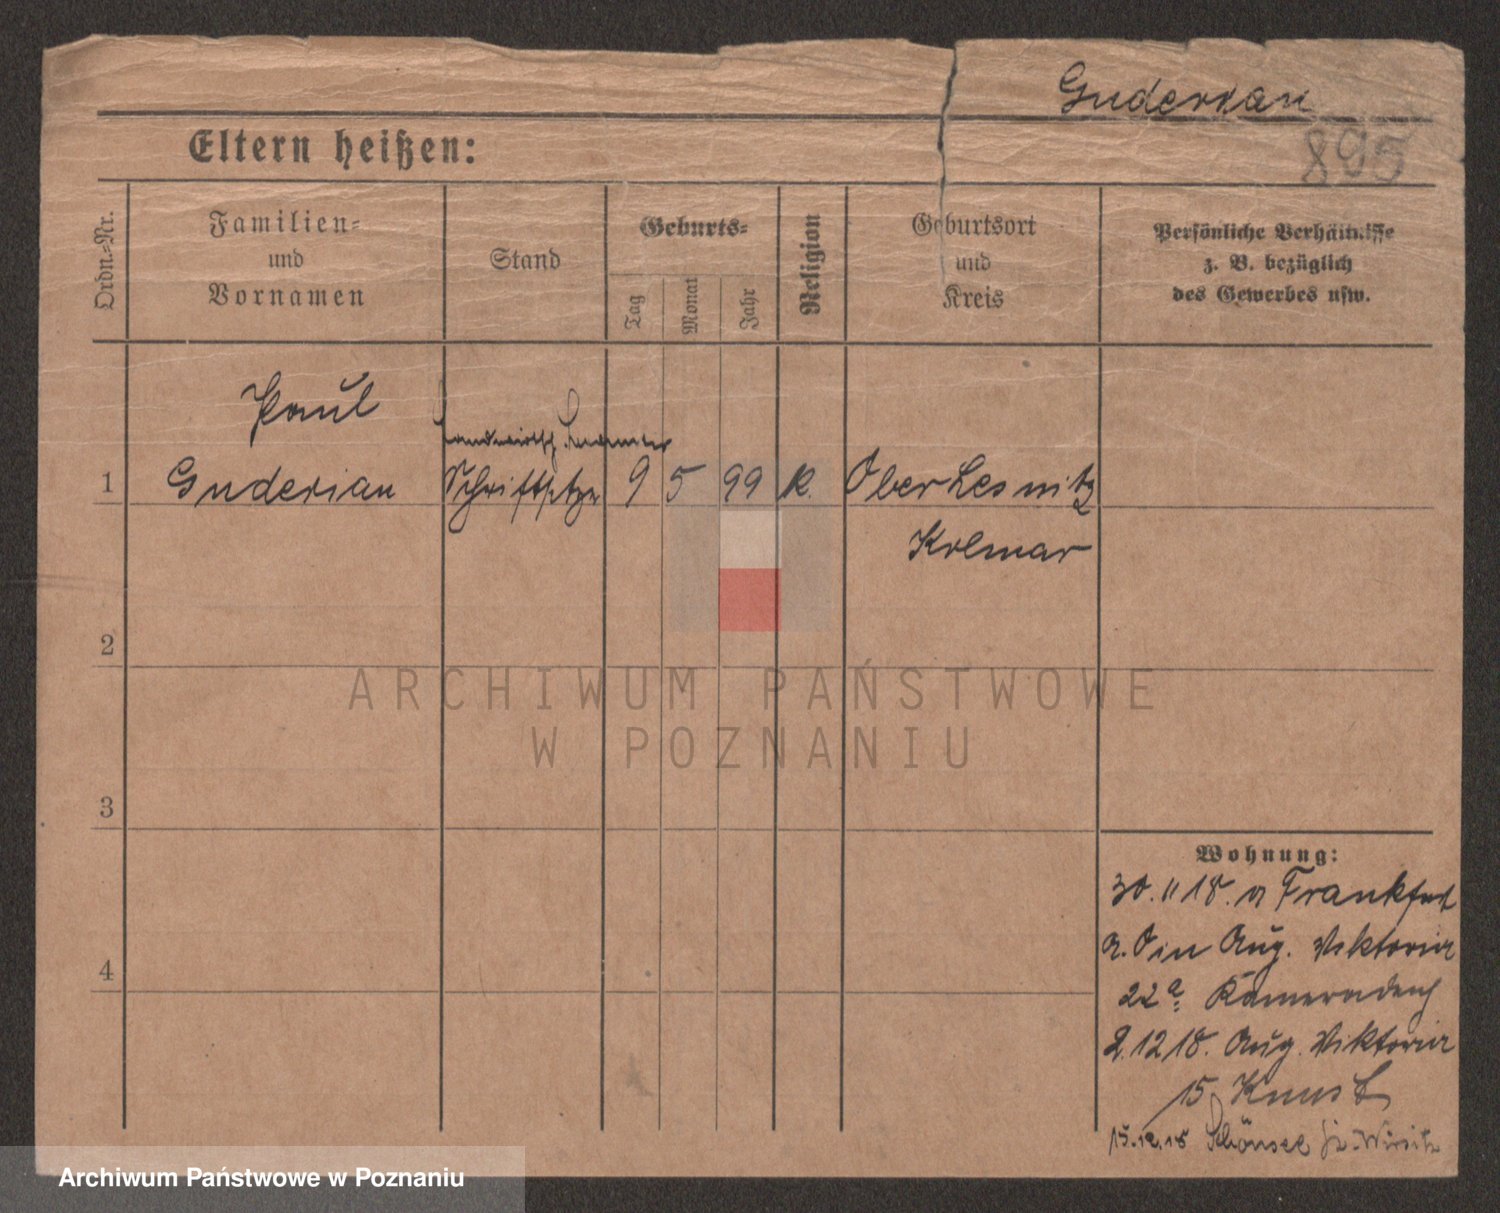 Guderian
895
Eltern heißen:
Ordn.-Nr.
Familien-
und
Vornamen
Stand
Geburts-
Tag
Monat
Jahr
Religion
Geburtsort
und
Kreis
Persönliche Verhältnisse
z. B. bezüglich
des Gewerbes usw.
Paul
1 Guderian Schriftsetzer 9 5 99 k. Ober Lesnitz
Kolmar
2
3
4
Wohnung:
30. 11 18. v Frankfurt
a. O in Aug. Viktoria
22a
2. 12 18. Aug. Viktoria
15
15.12.18 Schönsee Kr. Wirsitz
ARCHIWUM PAŃSTWOWE
W POZNANIU
Archiwum Państwowe w Poznaniu